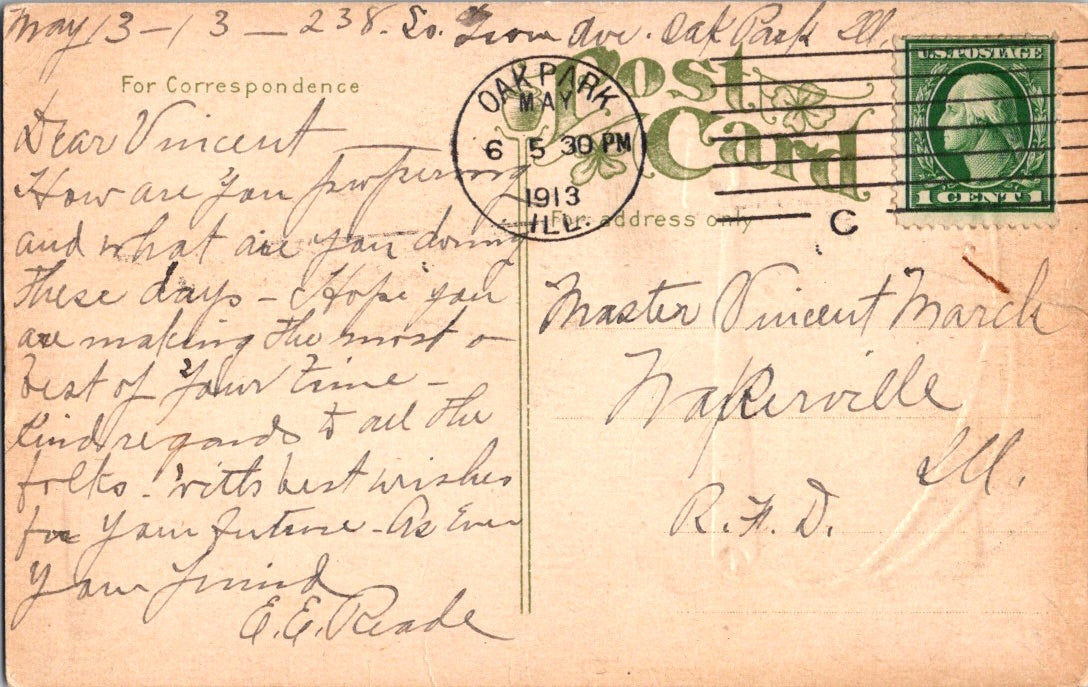 May 13 - 13 - 238. So. Grove Ave. Oak Park Ill.
For Correspondence
Dear Vincent
How are you prospering
and what are you doing
these days - Hope you
are making the most or
best of your time -
Kind regards to all the
folks - with best wishes
for your future - As Ever
your friend
E. E. Reade
Post
Card
OAK PARK
MAY
6 5 30 PM
1913
ILL.
For address only
C
U.S. POSTAGE
1 CENT 1
Master Vincent March
Ill.
R. F. D.